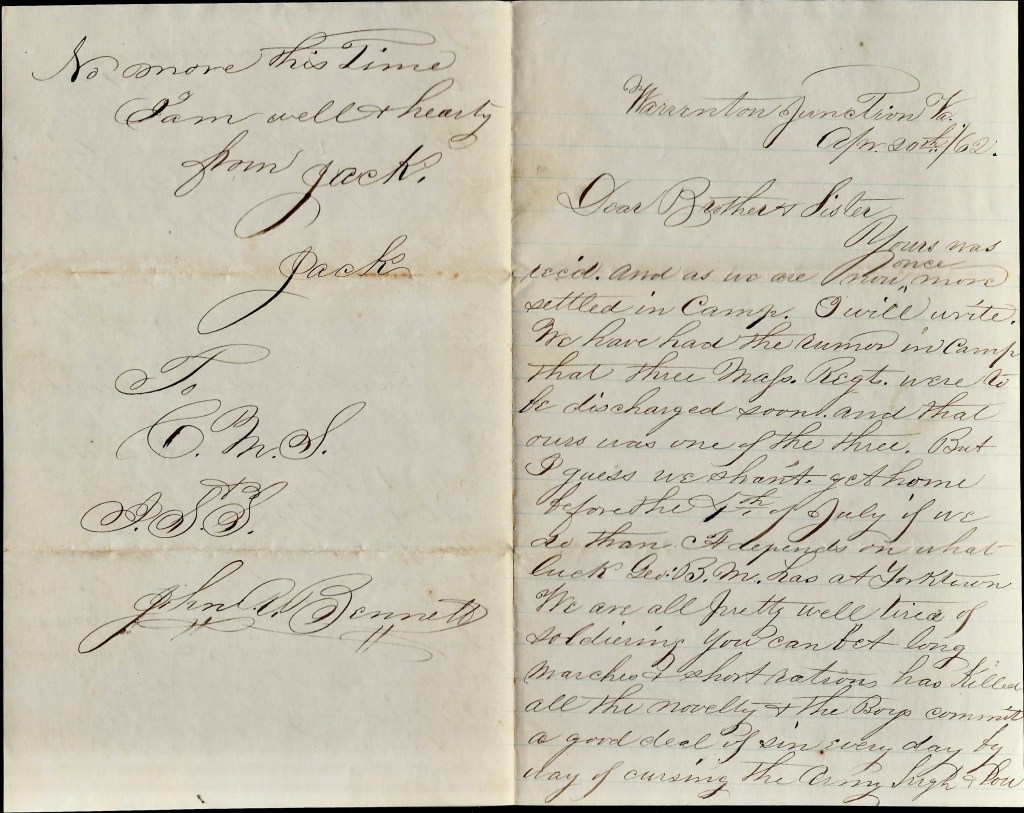 No more this Time
I am well & hearty
from Jack.
Jack
To
C. M. S.
A. S. S.
John A. Bennett
Warrenton Junction Va.
Apr. 20th/62.
Dear Brother & Sister
Yours was
rec'd. and as we are now once more
settled in Camp. I will write.
We have had the rumor in Camp
that three Mass. Regts. were to
be discharged soon. and that
ours was one of the three. But
I guess we shan't. get home
before the 4th. of July if we
do than. It depends on what
luck Geo. B. M. has at Yorktown
We are all pretty well tired of
soldiering you can bet long
marches & short rations has killed
all the novelty & the Boys commit
a good deal of sin every day by
way of cursing the Army high & low